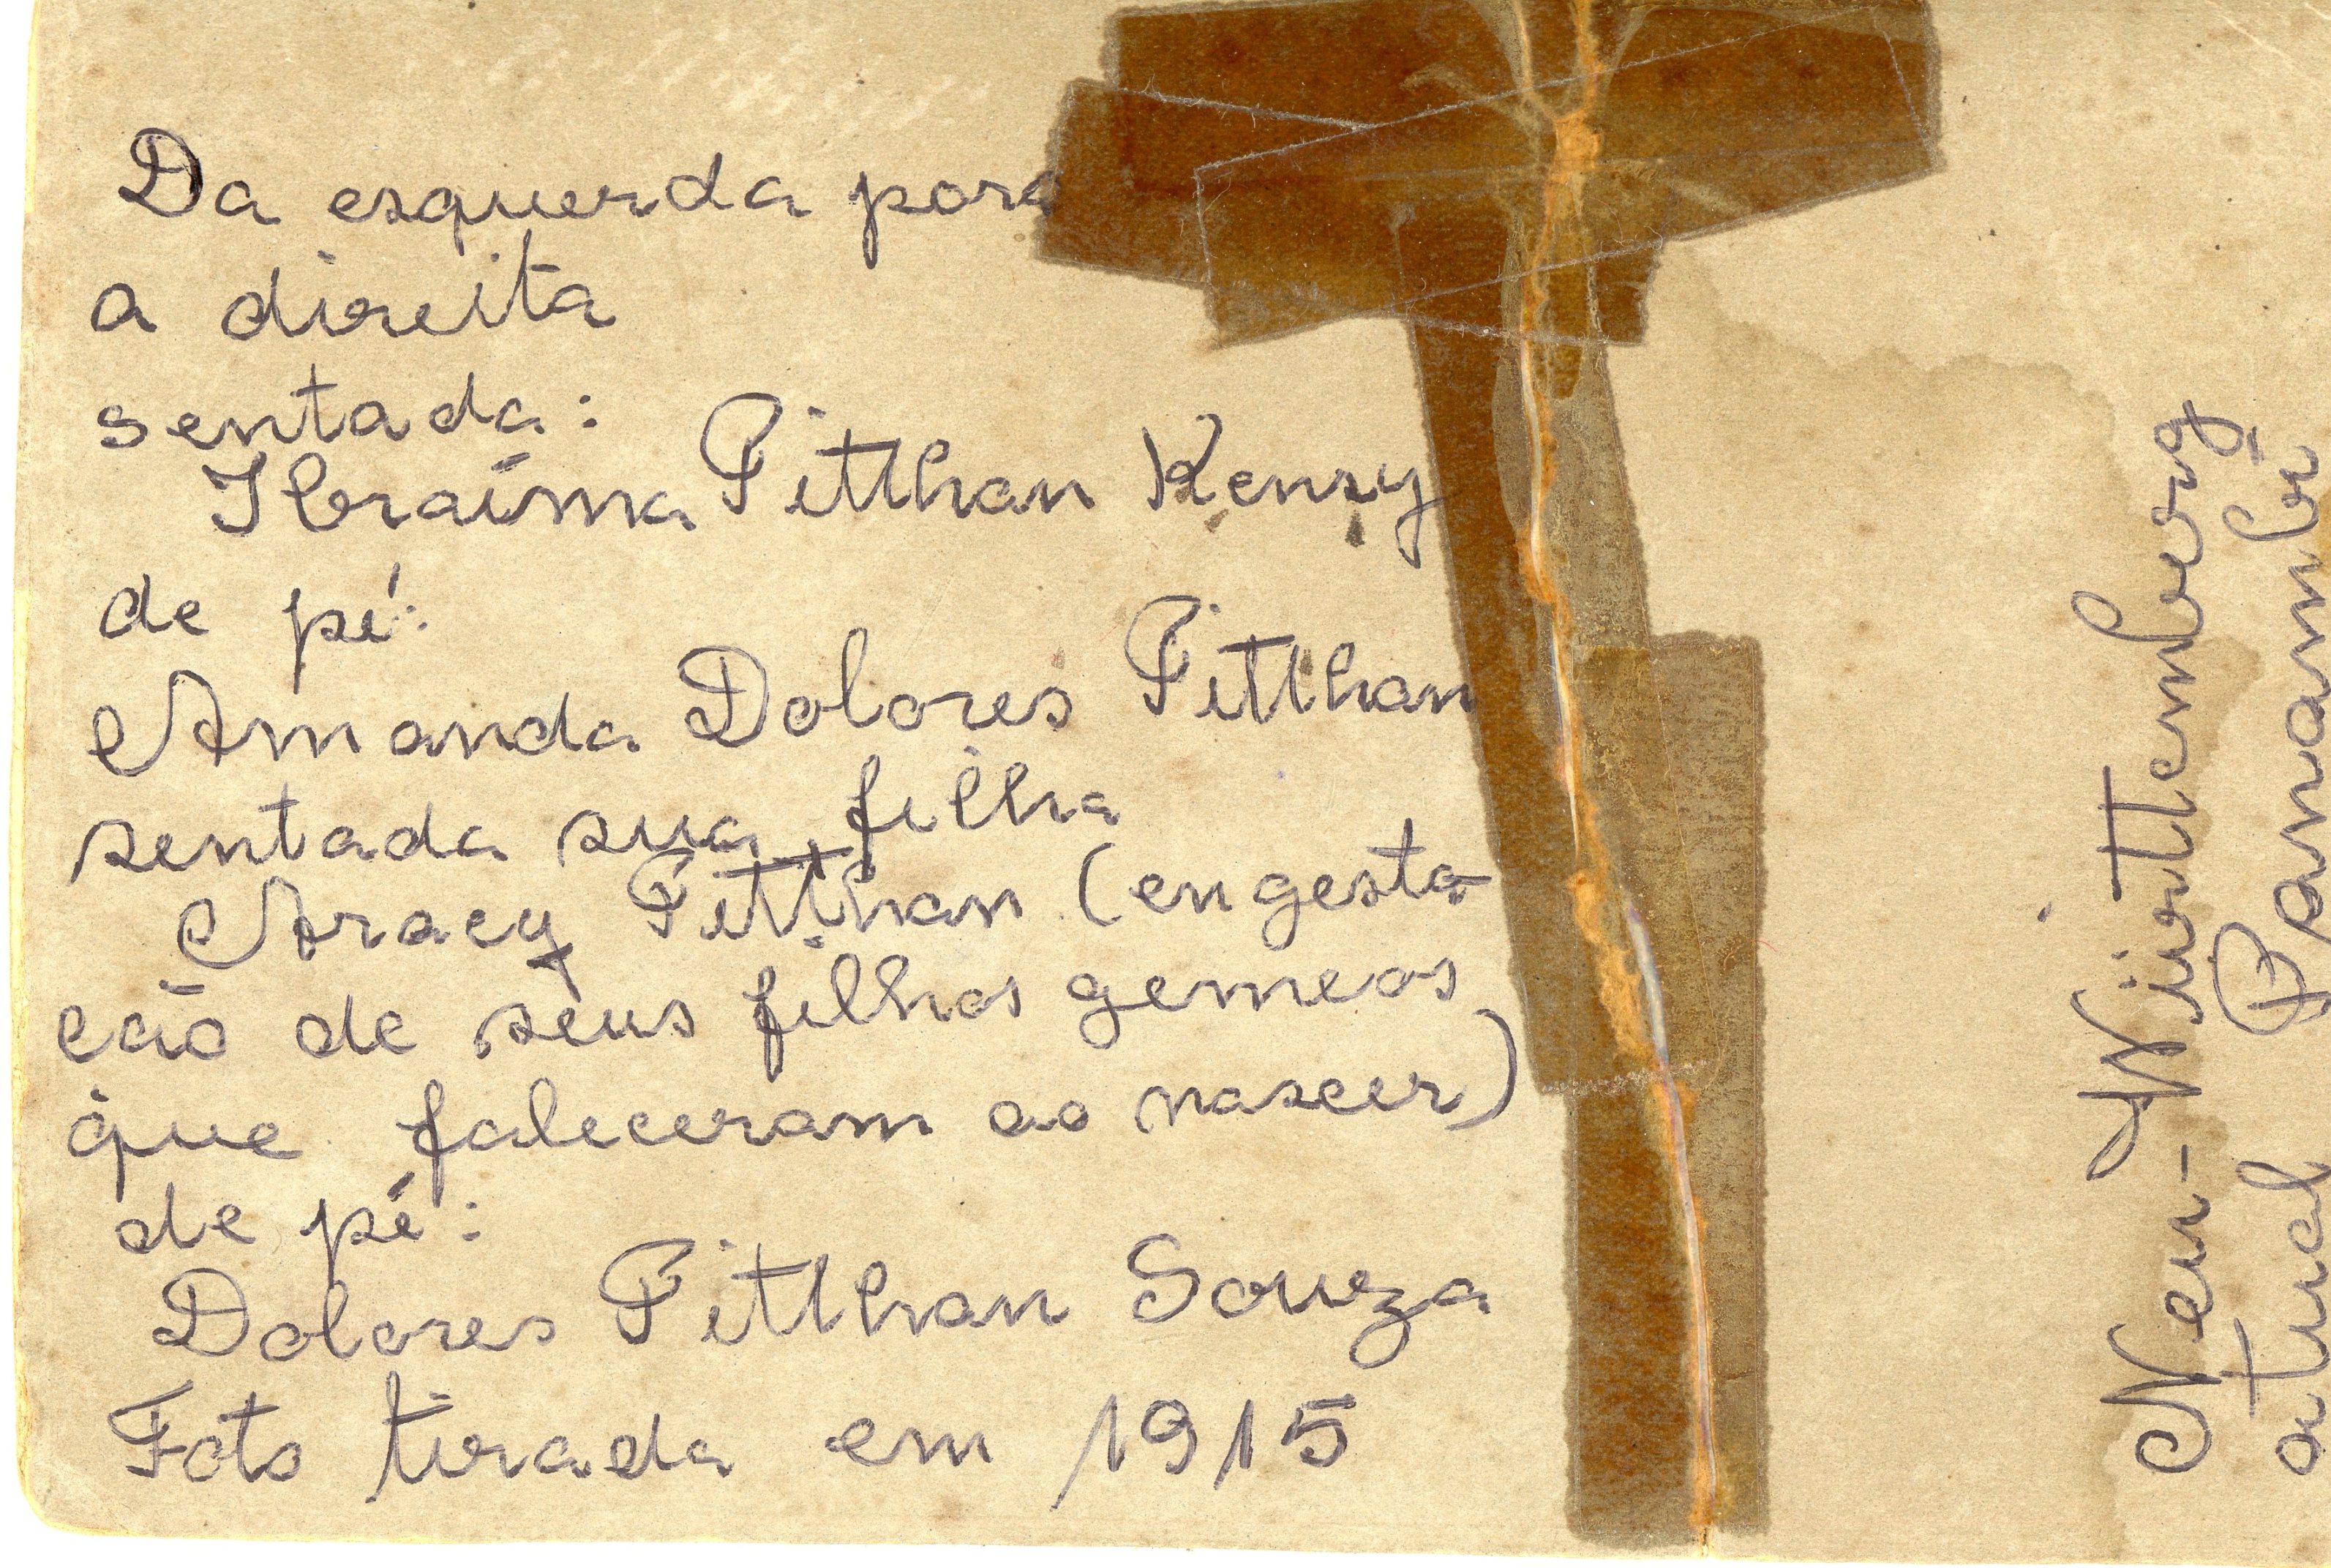 Da esquerda para
a direita
sentada:
Ibraíma Pitthan Kenry
de pé:
Amanda Dolores Pitthan
sentada sua filha
Aracy Pitthan (en gesta-
ção de seus filhos gemeos
que faleceram ao nascer)
de pé:
Dolores Pitthan Souza
Foto tirada em 1915
Neu-Würtemberg
atual Panambi